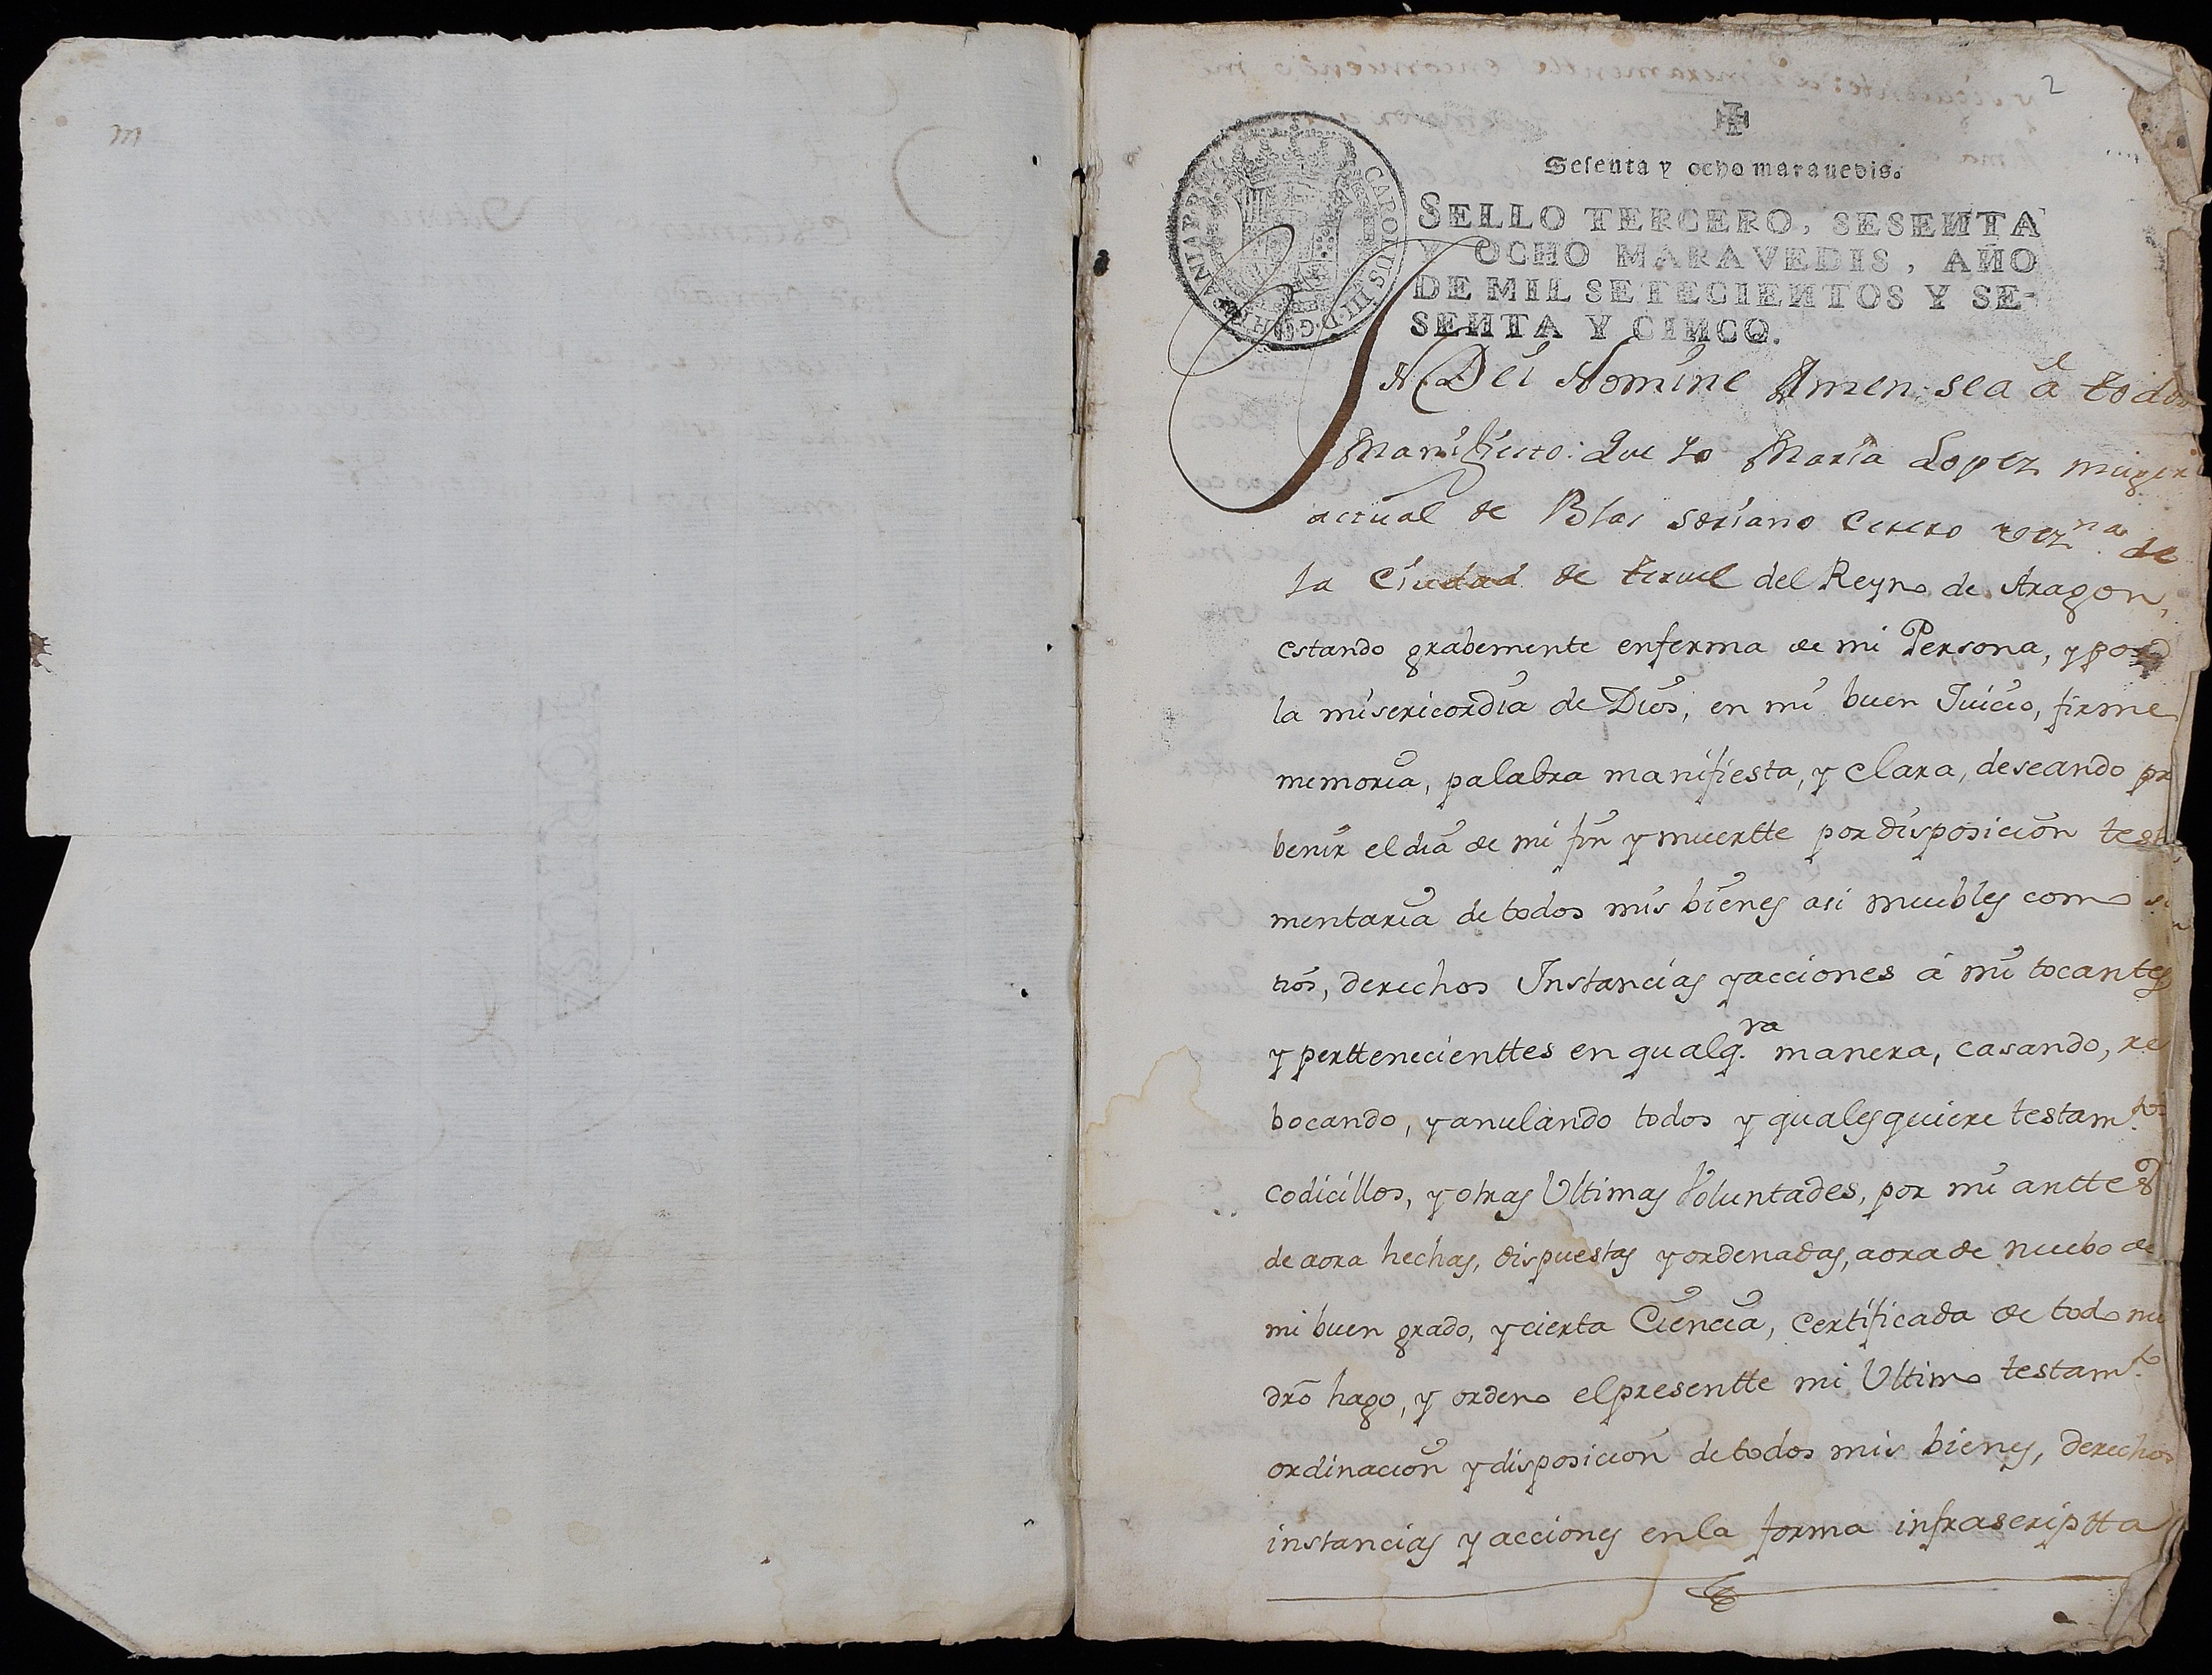 m
2
Sesenta y ocho maravedis.
SELLO TERCERO, SESENTA
Y OCHO MARAVEDIS, AÑO
DE MIL SETECIENTOS Y SE-
SENTA Y CINCO.
CAROLUS III D G HISPANIAR REX
IN Dei Nomine Amen. sea â todos
Manifiesto: Que Yo Maria Lopez muger
actual de Blas soriano Cerero vez.na de
la Ciudad de teruel del Reyno de Aragon,
estando grabemente enferma de mi Persona, y por
la misericordia de Dios, en mi buen Juicio, firme
memoria, palabra manifiesta, y clara, deseando pre
benir el dia de mi fin y muertte por disposicion testa
mentaria de todos mis bienes asi muebles como si
tios, derechos Instancias y acciones á mi tocantes
y perttenecienttes en qualq.ra manera, casando, re
bocando, y anulando todos y qualesquiere testam.tos
codicillos, y otras Ultimas Voluntades, por mi anttes
de aora hechas, dispuestas y ordenadas, aora de nuebo de
mi buen grado, y cierta Ciencia, Certificada de todo mi
dro hago, y ordeno el presentte mi Ultimo testam.to
ordinacion y disposicion de todos mis bienes, derechos
instancias y acciones en la forma infrascriptta